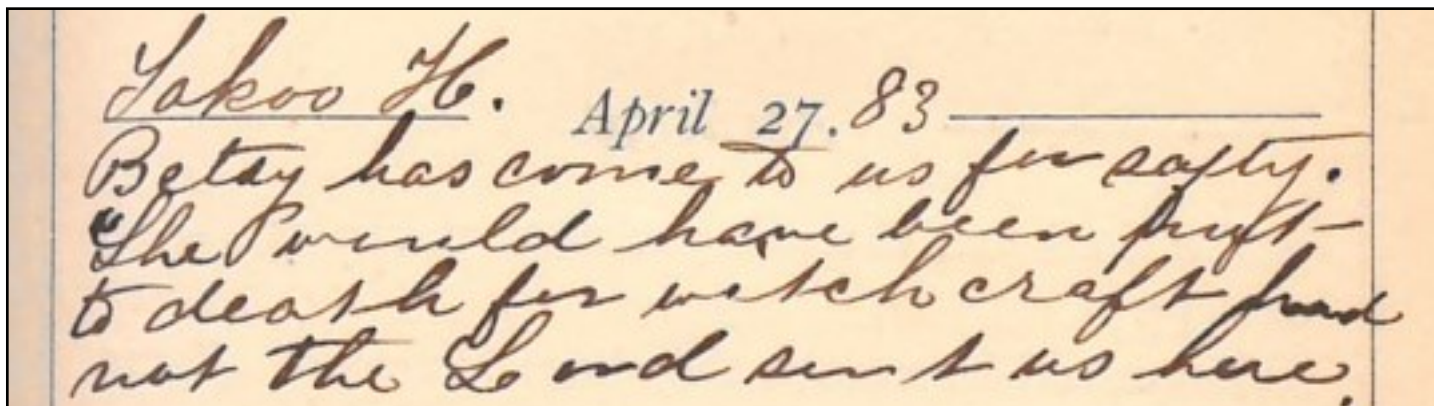 Takoo H. April 27. 83
Betsy has come to us for safty.
"She would have been put
to death for witch craft had
not the Lord sent us here,